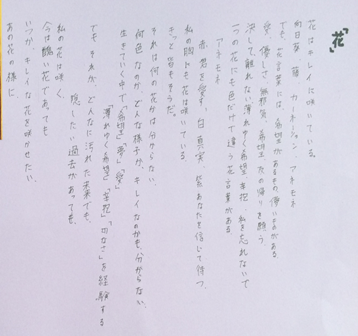 「花」
花はキレイに咲いている。
向日葵 藤 カーネーション アネモネ
でも、花言葉には、希望があるもの、儚いものがある
愛、優しさ、無邪気、希望、友の帰りを願う
決して離れない 薄れゆく希望 辛抱 私を忘れないで
一つの花にも色だけで違う花言葉がある
アネモネ
赤 君を愛す、白 真実、紫 あなたを信じて待つ、
私の胸にも花は咲いている
きっと皆もそうだ。
それは何の花かは分からない、
何色なのか、どんな様子か、キレイなのかも、分からない、
生きていく中で、「希望」「夢」「愛」
「薄れゆく希望」「辛抱」「切なさ」を経験する
でも それが、どんなに汚れた未来でも、
隠したい過去があっても、
私の花は咲く、
今は醜い花であっても
いつか、キレイな花を咲かせたい、
あの花の様に